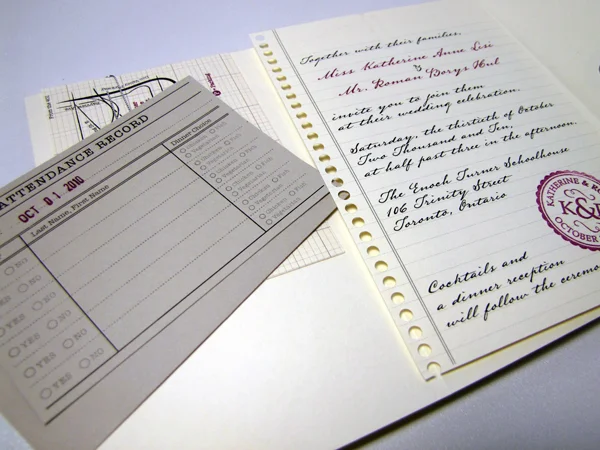 ATTENDANCE RECORD
OCT 01 2010
Last Name, First Name
Dinner Choice
NO
YES NO
YES NO
YES NO
YES NO
Together with their families,
Miss Katherine Anne Lisi
&
Mr. Roman Borys Hul
invite you to join them
at their wedding celebration.
Saturday, the thirtieth of October
Two Thousand and Ten,
at half past three in the afternoon.
The Enoch Turner Schoolhouse
106 Trinity Street
Toronto, Ontario
KATHERINE & RO
K&
OCTOBER
Cocktails and
a dinner reception
will follow the ceremo